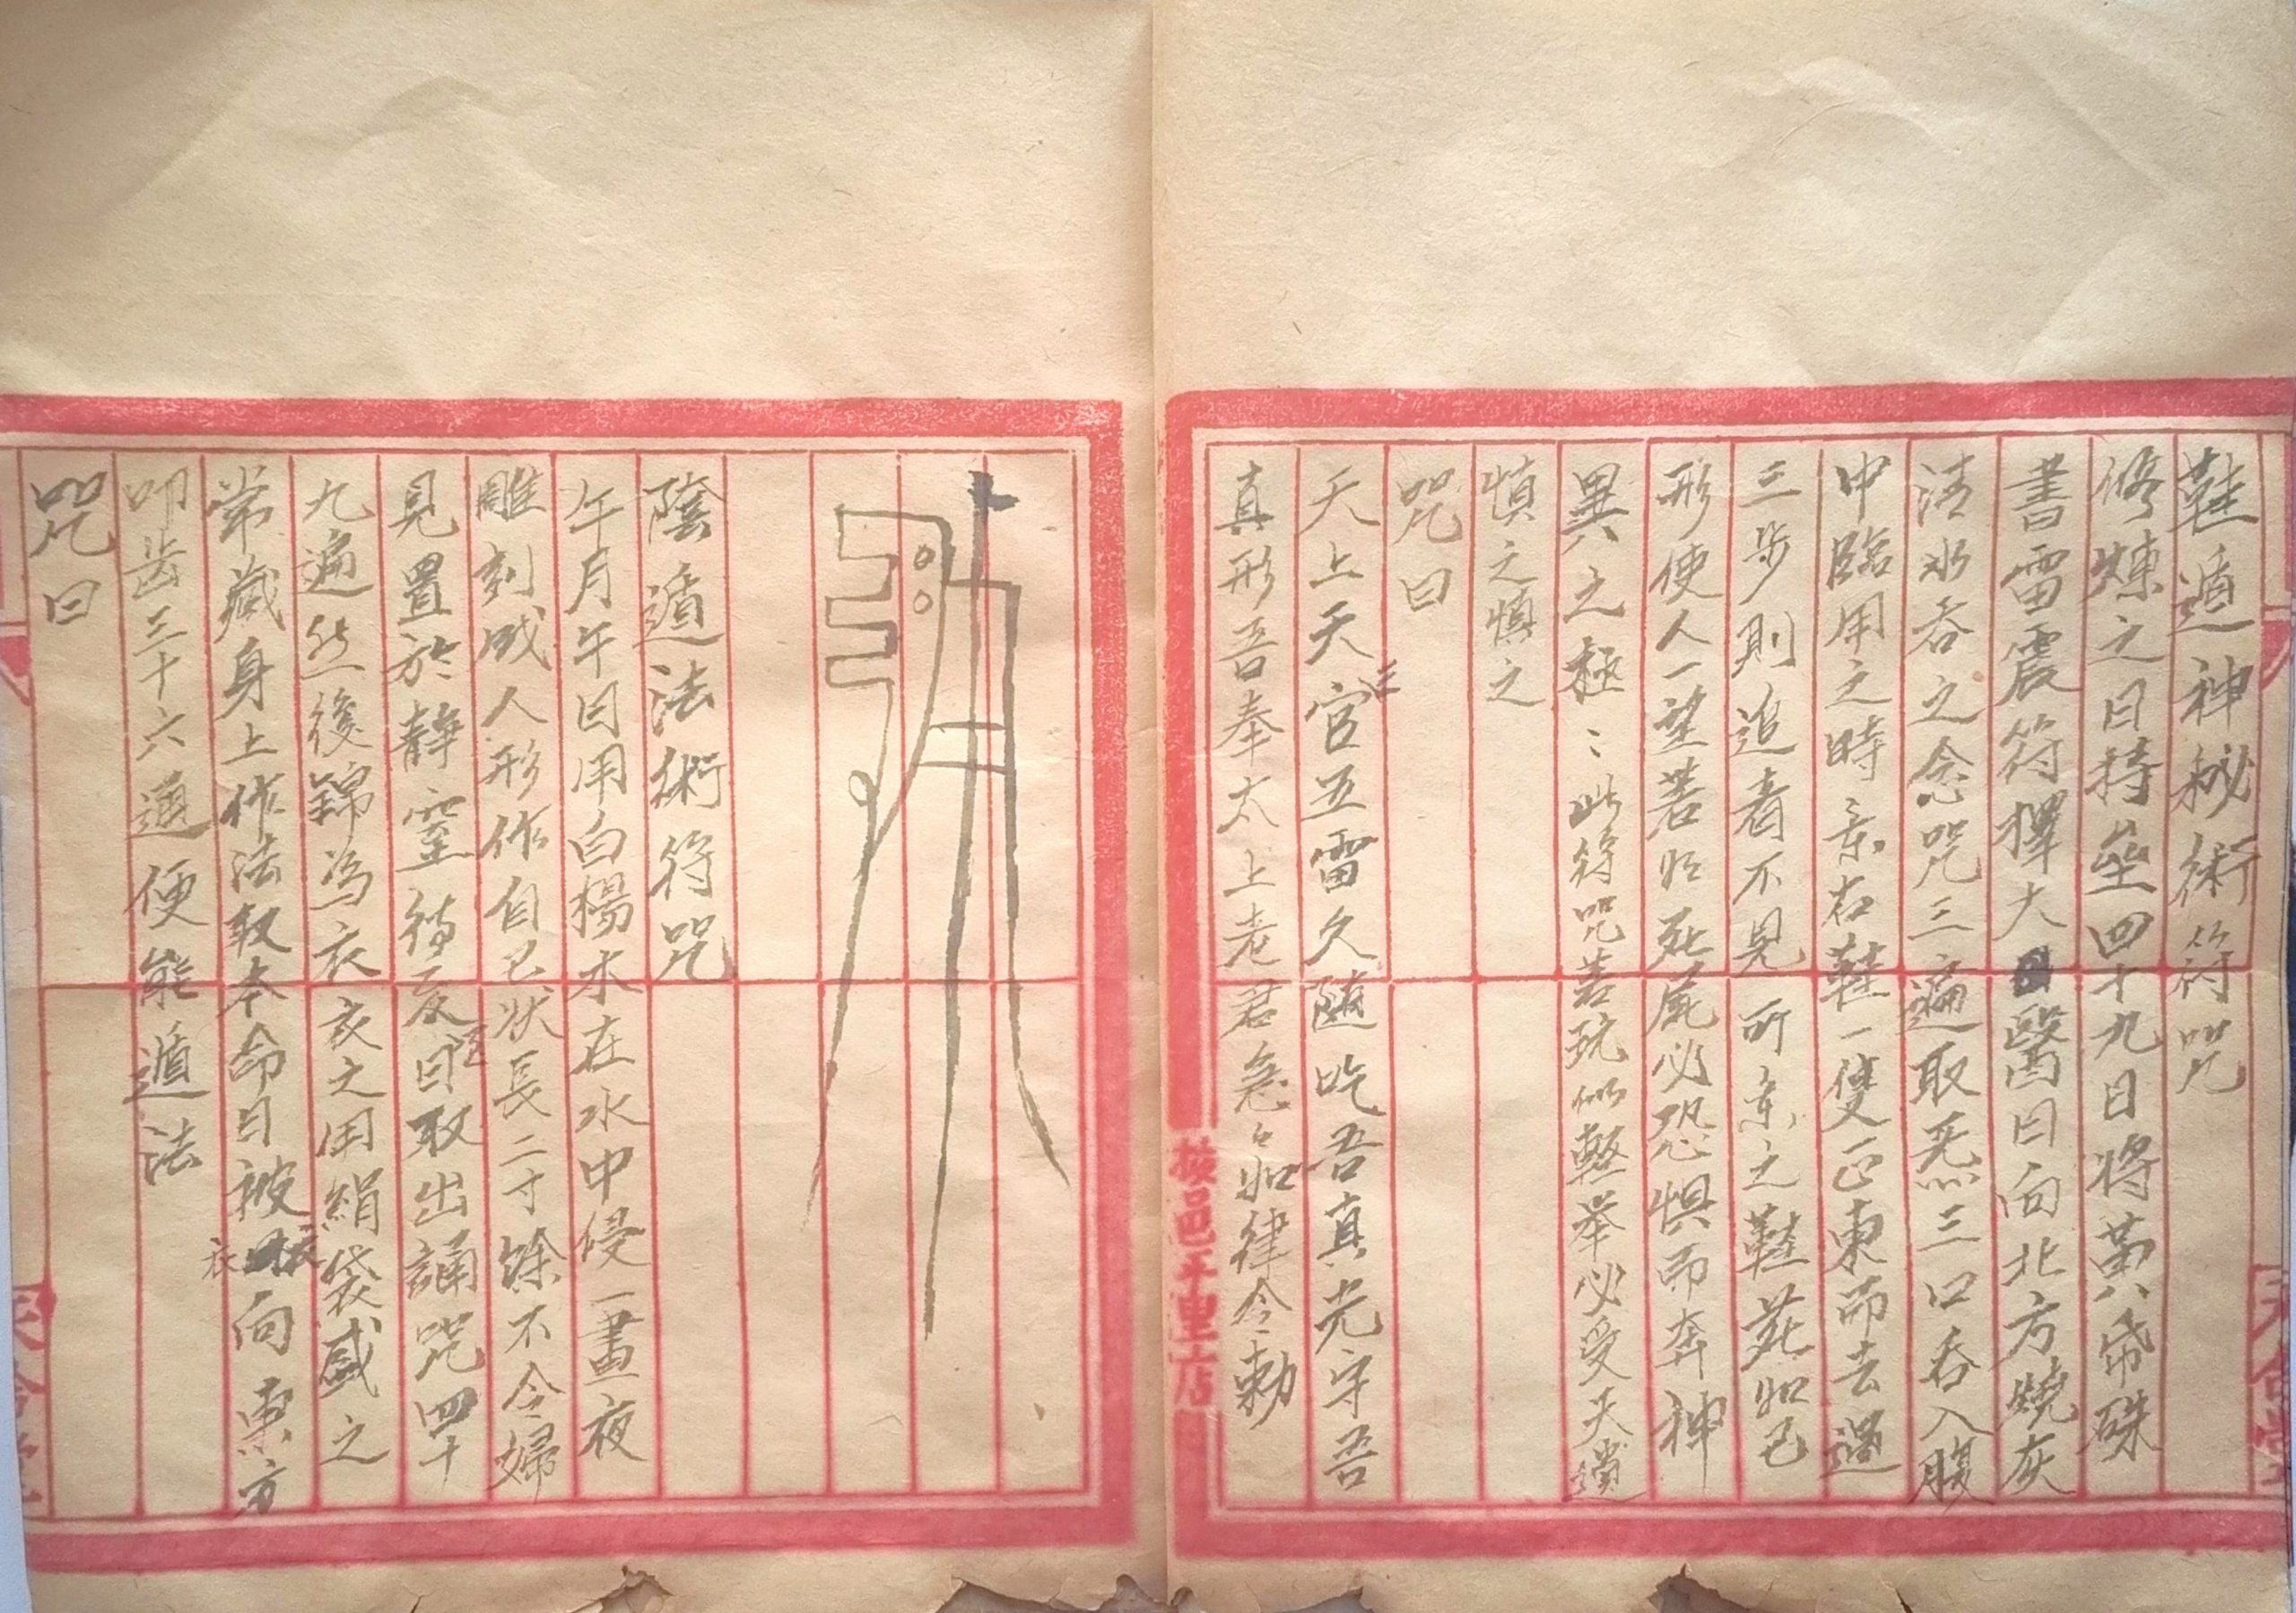 鞋遁神秘術符咒
修煉之日持壘四十九日將黃帋硃
書雷震符擇大醫日向北方燒灰
清水吞之念咒三遍取炁三口吞入腹
中臨用之時弃右鞋一隻正東而去過
三步則追者不見所弃之鞋死如己
形使人一望若如死屍必恐惧而奔神
異之極〻此符咒若玩似輕举必受天譴
慎之慎之
咒曰
天上天官五雷久隨吃吾真光守吾
真形吾奉太上老君急〻如律令勅
陰遁法術符咒
午月午日用白楊木在水中侵一晝夜
雕刻成人形作自己狀長二寸餘不令婦
見置於靜室待辰日取出誦咒四十
九遍然後錦為衣衣之用絹袋盛之
常藏身上作法取本命日被衣向東方
叩齿三十六通便能遁法
咒曰